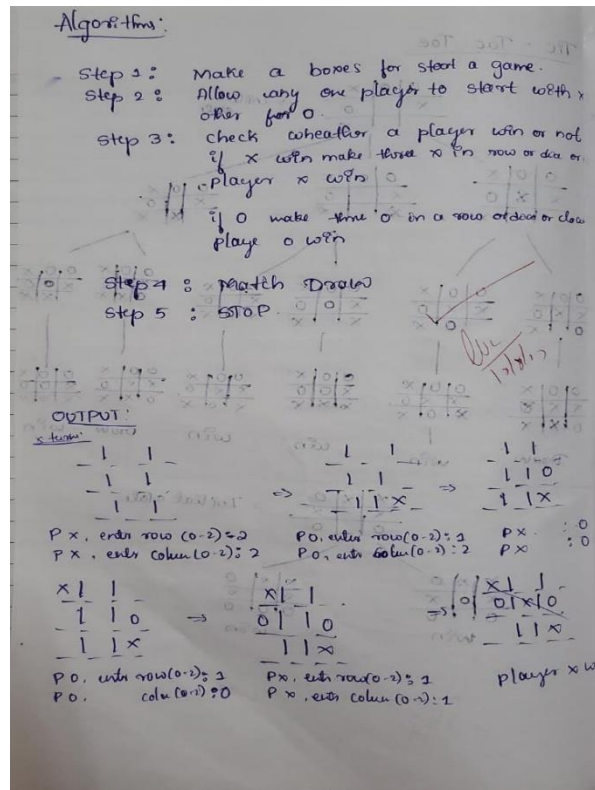 Algorithms:
Step 1: Make a boxes for start a game.
Step 2: Allow any one player to start with x
other for O.
Step 3: check wheather a player win or not
if x win make three x in row or dia or
player x win
if O make three O in a row or or
playe O win
Step 4: Match Draw
Step 5: STOP.
OUTPUT:
x turn:
| | | | | |
| | | | | | O
| | | | x | | x
P x, enter row (0-2): 2 P O, enter row (0-2): 1 P x : 0
P x, enter colum (0-2): 2 P O, enter colum (0-2): 2 P x : 0
x | | x | | x | |
| | O O | | O O | x | O
| | x | | x | | x
P O, enter row (0-2): 1 P x, enter row (0-2): 1 player x w
P O, colum (0-2): 0 P x, enter colum (0-2): 1